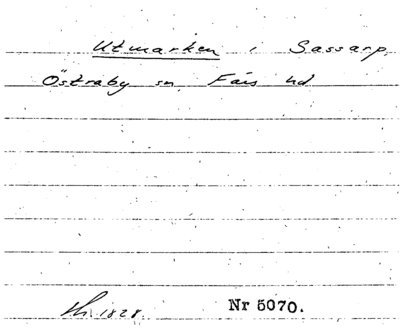 Utmarken i Sassarp,
Östraby sn, Färs hd
Lh. 1828. Nr 5070.